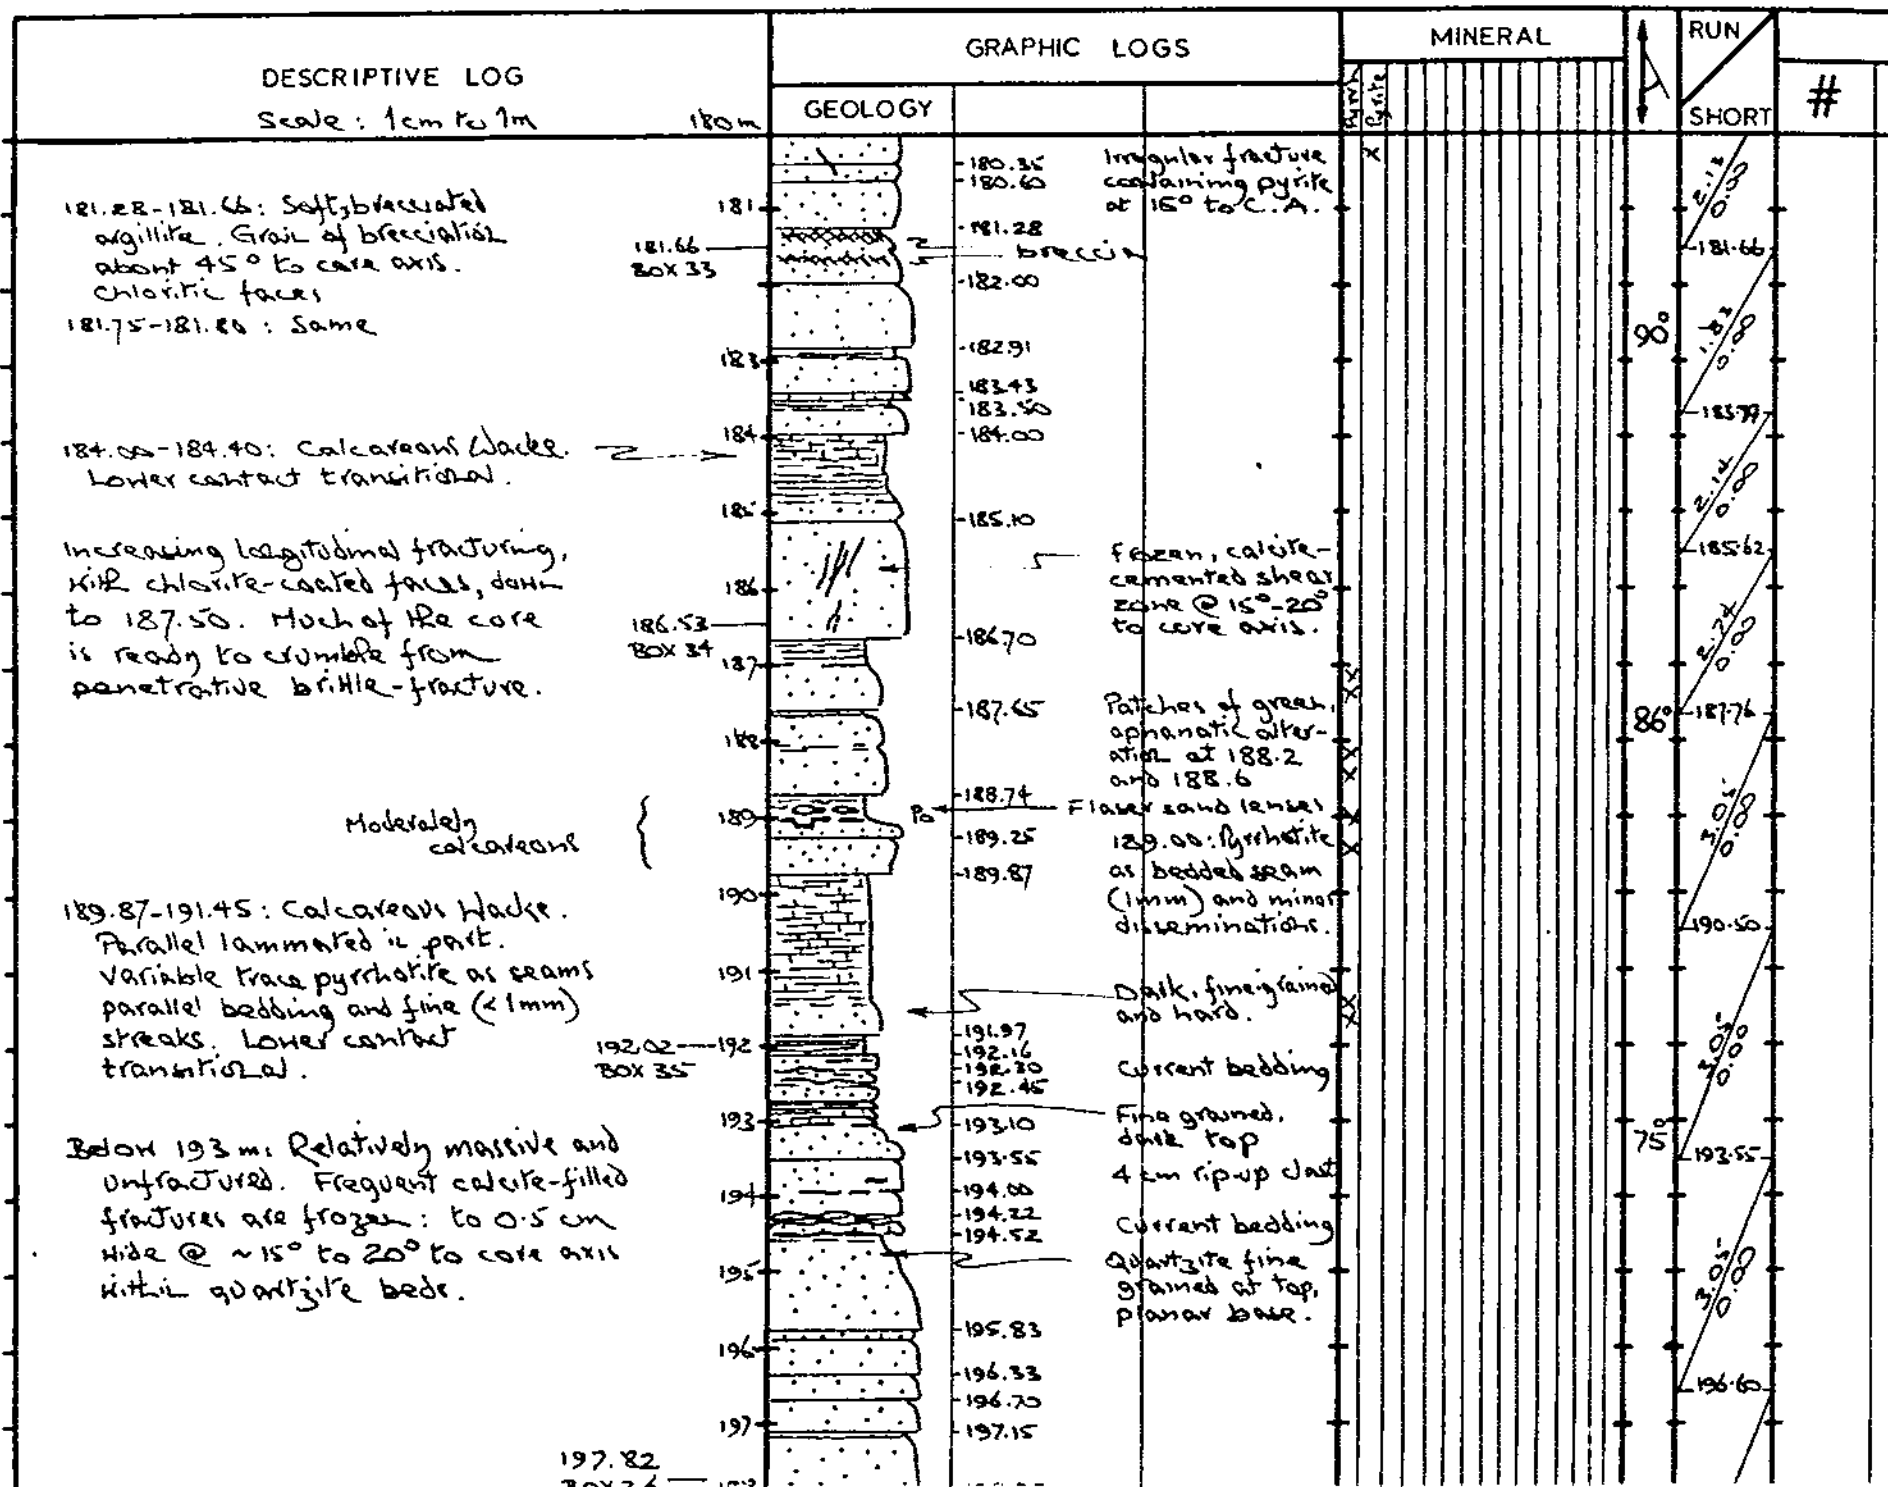 DESCRIPTIVE LOG
Scale: 1cm to 1m
180m
GRAPHIC LOGS
GEOLOGY
MINERAL
Pyrite
RUN
SHORT
#
181.28-181.66: Soft, brecciated
argillite. Grain of brecciation
about 45° to core axis.
Chloritic faces
181.75-181.80: Same
181.66
BOX 33
184.00-184.40: Calcareous Wacke.
Lower contact transitional.
Increasing longitudinal fracturing,
with chlorite-coated faces, down
to 187.50. Much of the core
is ready to crumble from
penetrative brittle-fracture.
186.53
BOX 34
Moderately
calcareous
189.87-191.45: Calcareous Wacke.
Parallel laminated in part.
Variable trace pyrrhotite as seams
parallel bedding and fine (<1mm)
streaks. Lower contact
transitional.
192.02
BOX 35
Below 193 m: Relatively massive and
unfractured. Frequent calcite-filled
fractures are frozen: to 0.5 cm
wide @ ~15° to 20° to core axis
within quartzite beds.
197.82
BOX 36
181
183
184
185
186
187
188
189
190
191
192
193
194
195
196
197
180.35
180.60
181.28
182.00
182.91
183.43
183.50
184.00
185.10
186.70
187.65
188.74
189.25
189.87
191.97
192.16
192.30
192.45
193.10
193.55
194.00
194.22
194.52
195.83
196.33
196.70
197.15
Irregular fracture
containing pyrite
at 15° to C.A.
breccia
Frozen, calcite-
cemented shear
zone @ 15°-20°
to core axis.
Patches of green,
aphanatic alter-
ation at 188.2
and 188.6
Po
Flaser sand lenses
189.00: Pyrrhotite
as bedded seam
(1mm) and minor
disseminations.
Dark, fine grained
and hard.
Current bedding
Fine grained,
dark top
4 cm rip-up clast
Current bedding
Quartzite fine
grained at top,
planar base.
x
x
x
x
x
x
x
x
x
90°
86°
75°
2.13
0.8
181.66
1.83
0.8
2.14
0.8
185.62
0.8
187.76
3.05
0.8
190.50
3.05
193.55
3.05
0.8
196.60